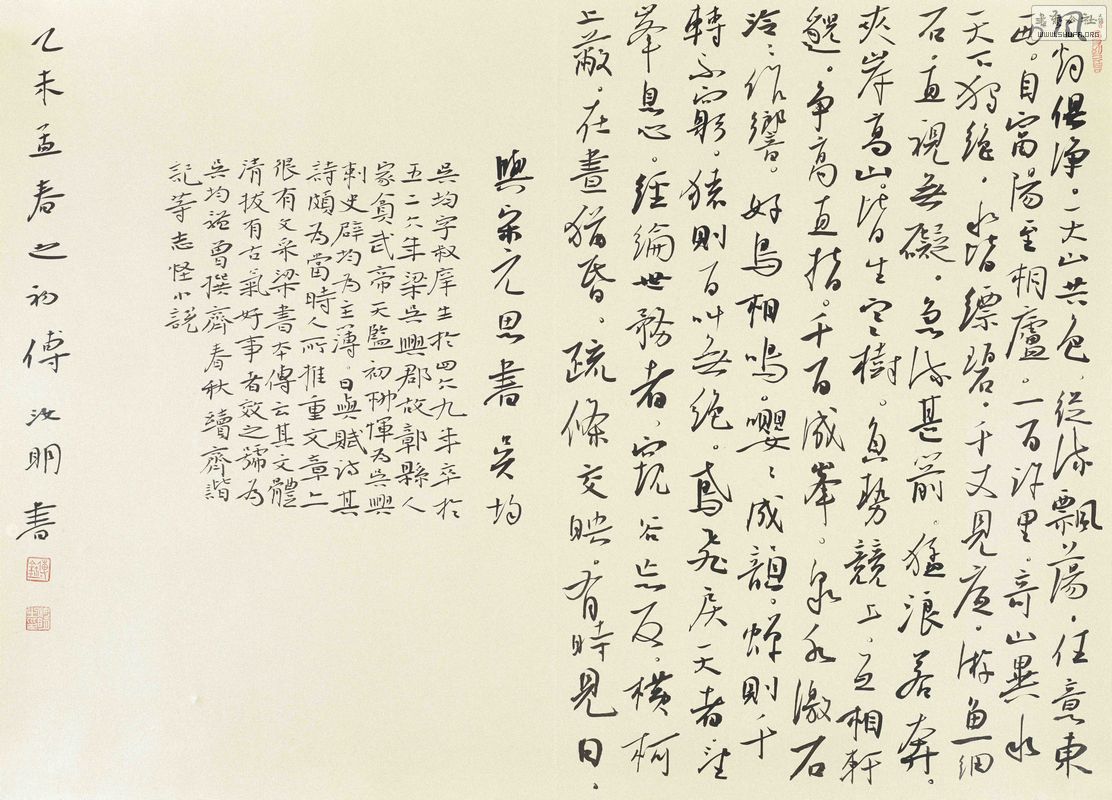 風烟俱淨。天山共色，從流飄蕩，任意東
西。自富陽至桐廬。一百許里。奇山異水
天下獨絕，水皆縹碧，千丈見底，游魚細
石，直視無礙。急湍甚箭。猛浪若奔。
夾岸高山。皆生寒樹。負勢競上，互相軒
邈。爭高直指。千百成峯。泉水激石
泠〻作響。好鳥相鳴。嚶〻成韻。蟬則千
轉不窮。猿則百叫無絕。鳶飛戾天者。望
峯息心。經綸世務者，窺谷忘反。橫柯
上蔽。在晝猶昏。疏條交映。有時見日、
與宋元思書 吳均
吳均字叔庠生於四六九年卒於
五二六年梁吳興郡故鄣縣人
家貧武帝天監初柳惲為吳興
刺史辟均為主薄。日與賦詩其
詩頗為當時人所推重文章上
很有文采梁書本傳云其文體
清拔有古氣好事者效之號為
吳均 曾撰齊春秋續齊諧
記等志怪小說
乙未孟春之初傅汝明書
书法公社
WWW.SYUFA.ORG